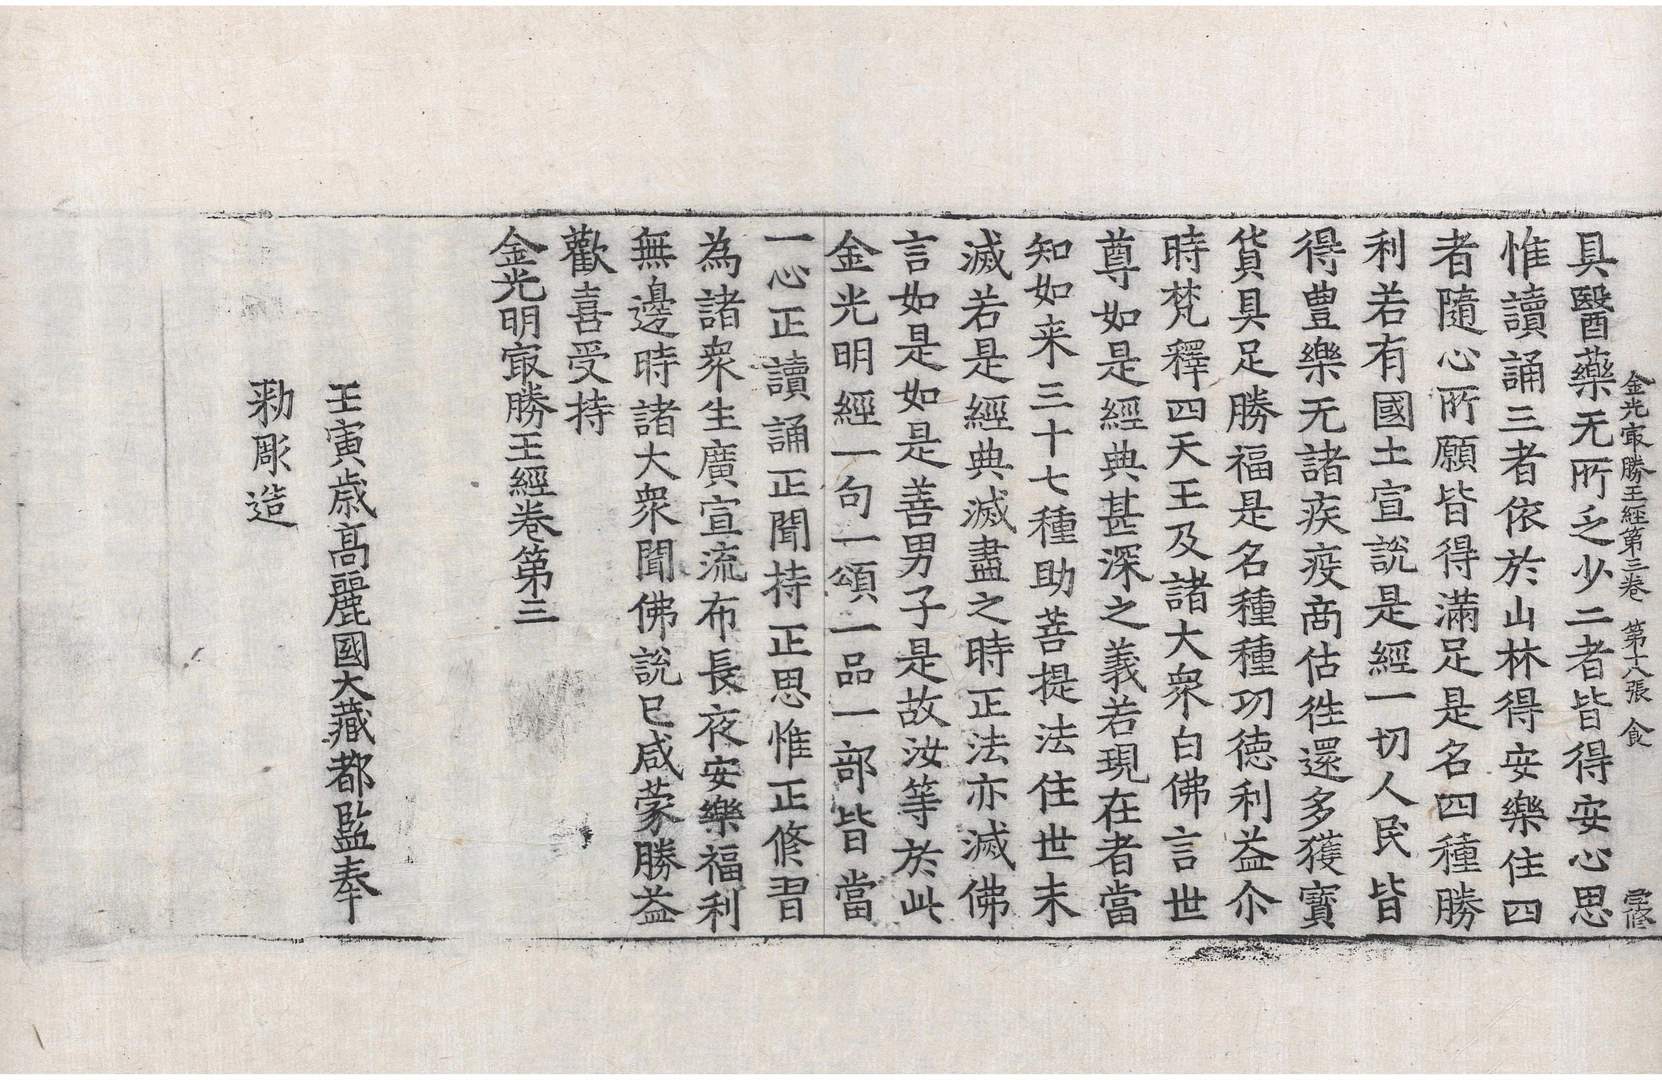 金光㝡勝王經第三卷　第十八張　食
具醫藥无所乏少二者皆得安心思
惟讀誦三者依於山林得安樂住四
者隨心所願皆得滿足是名四種勝
利若有國土宣說是經一切人民皆
得豊樂无諸疾疫商估徃還多獲寶
貨具足勝福是名種種功德利益尒
時梵釋四天王及諸大衆白佛言世
尊如是經典甚深之義若現在者當
知如来三十七種助菩提法住世未
滅若是經典滅盡之時正法亦滅佛
言如是如是善男子是故汝等於此
金光明經一句一頌一品一部皆當
一心正讀誦正聞持正思惟正修習
為諸衆生廣宣流布長夜安樂福利
無邊時諸大衆聞佛說已咸蒙勝益
歡喜受持
金光明㝡勝王經卷第三
壬寅歳高麗國大藏都監奉
勑彫造